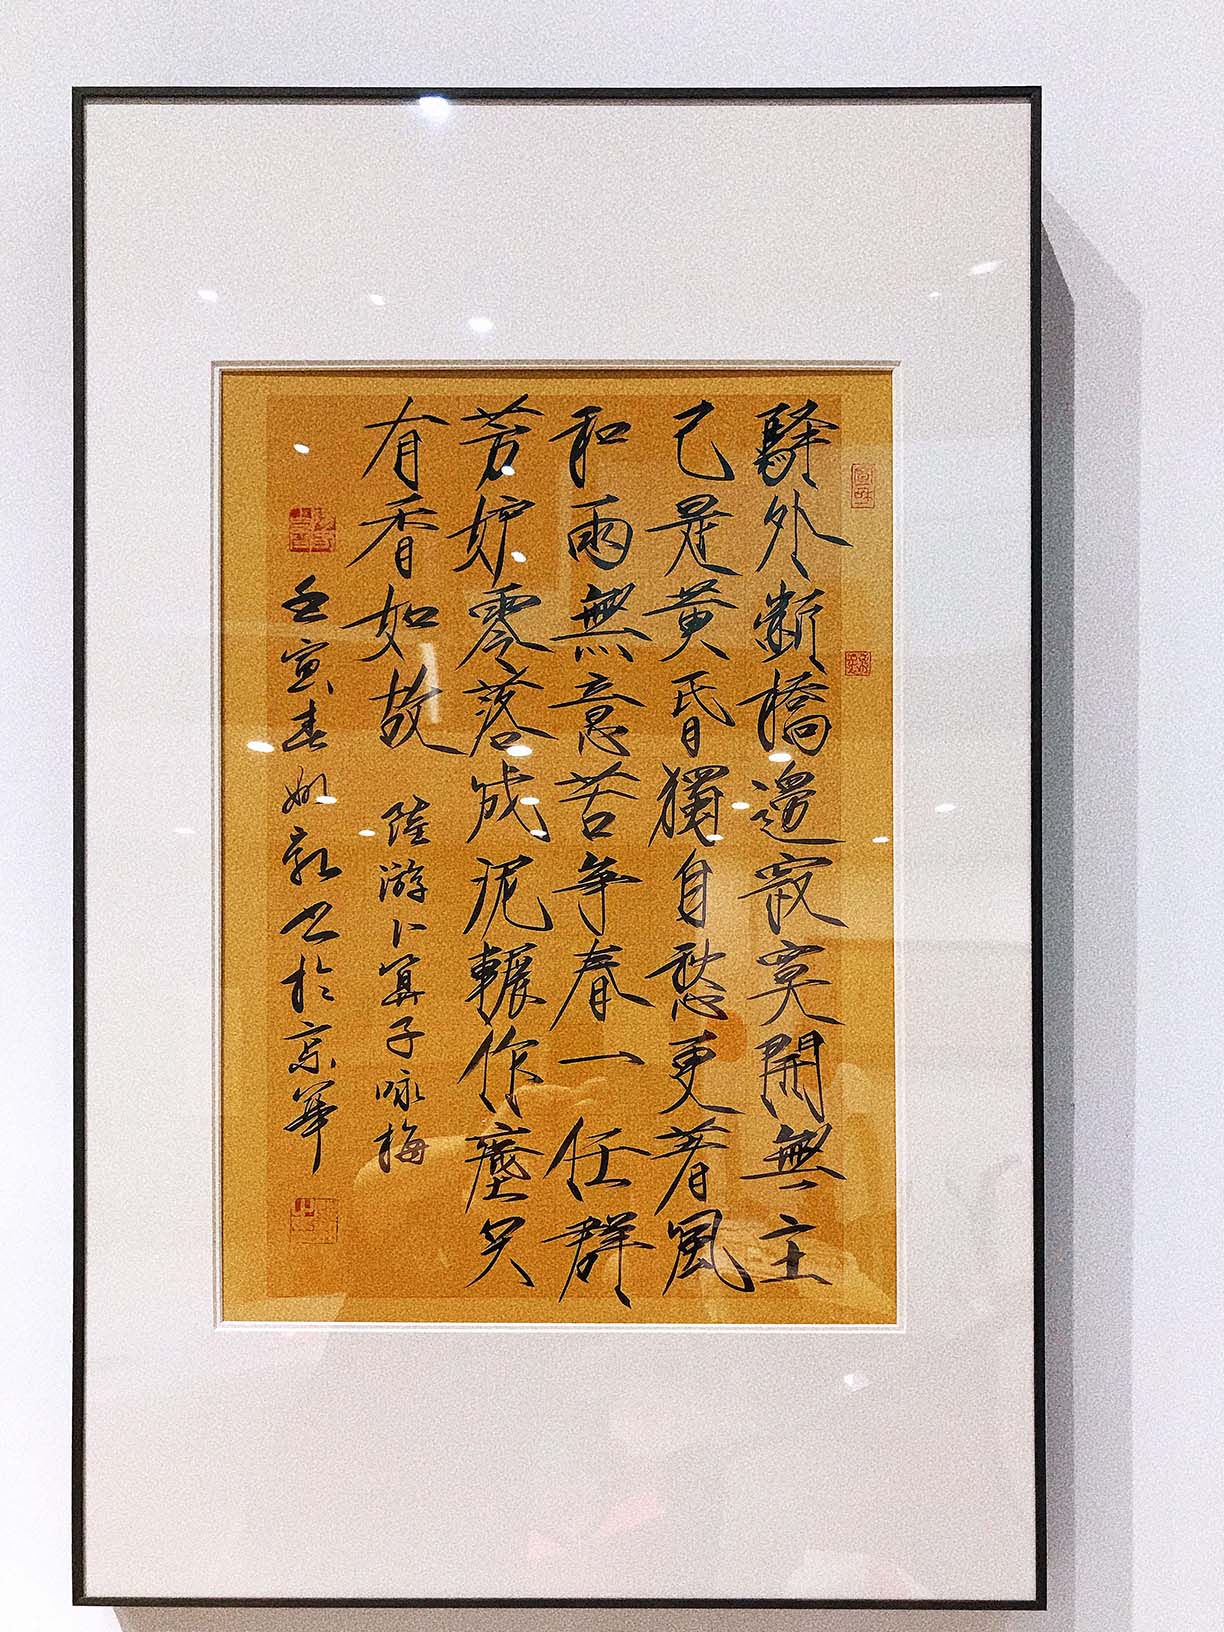 驛外斷橋邊寂寞開無主
已是黃昏獨自愁更着風
和雨無意苦爭春一任群
芳妒零落成泥輾作塵只
有香如故
陸游卜算子咏梅
壬寅春 書於京華